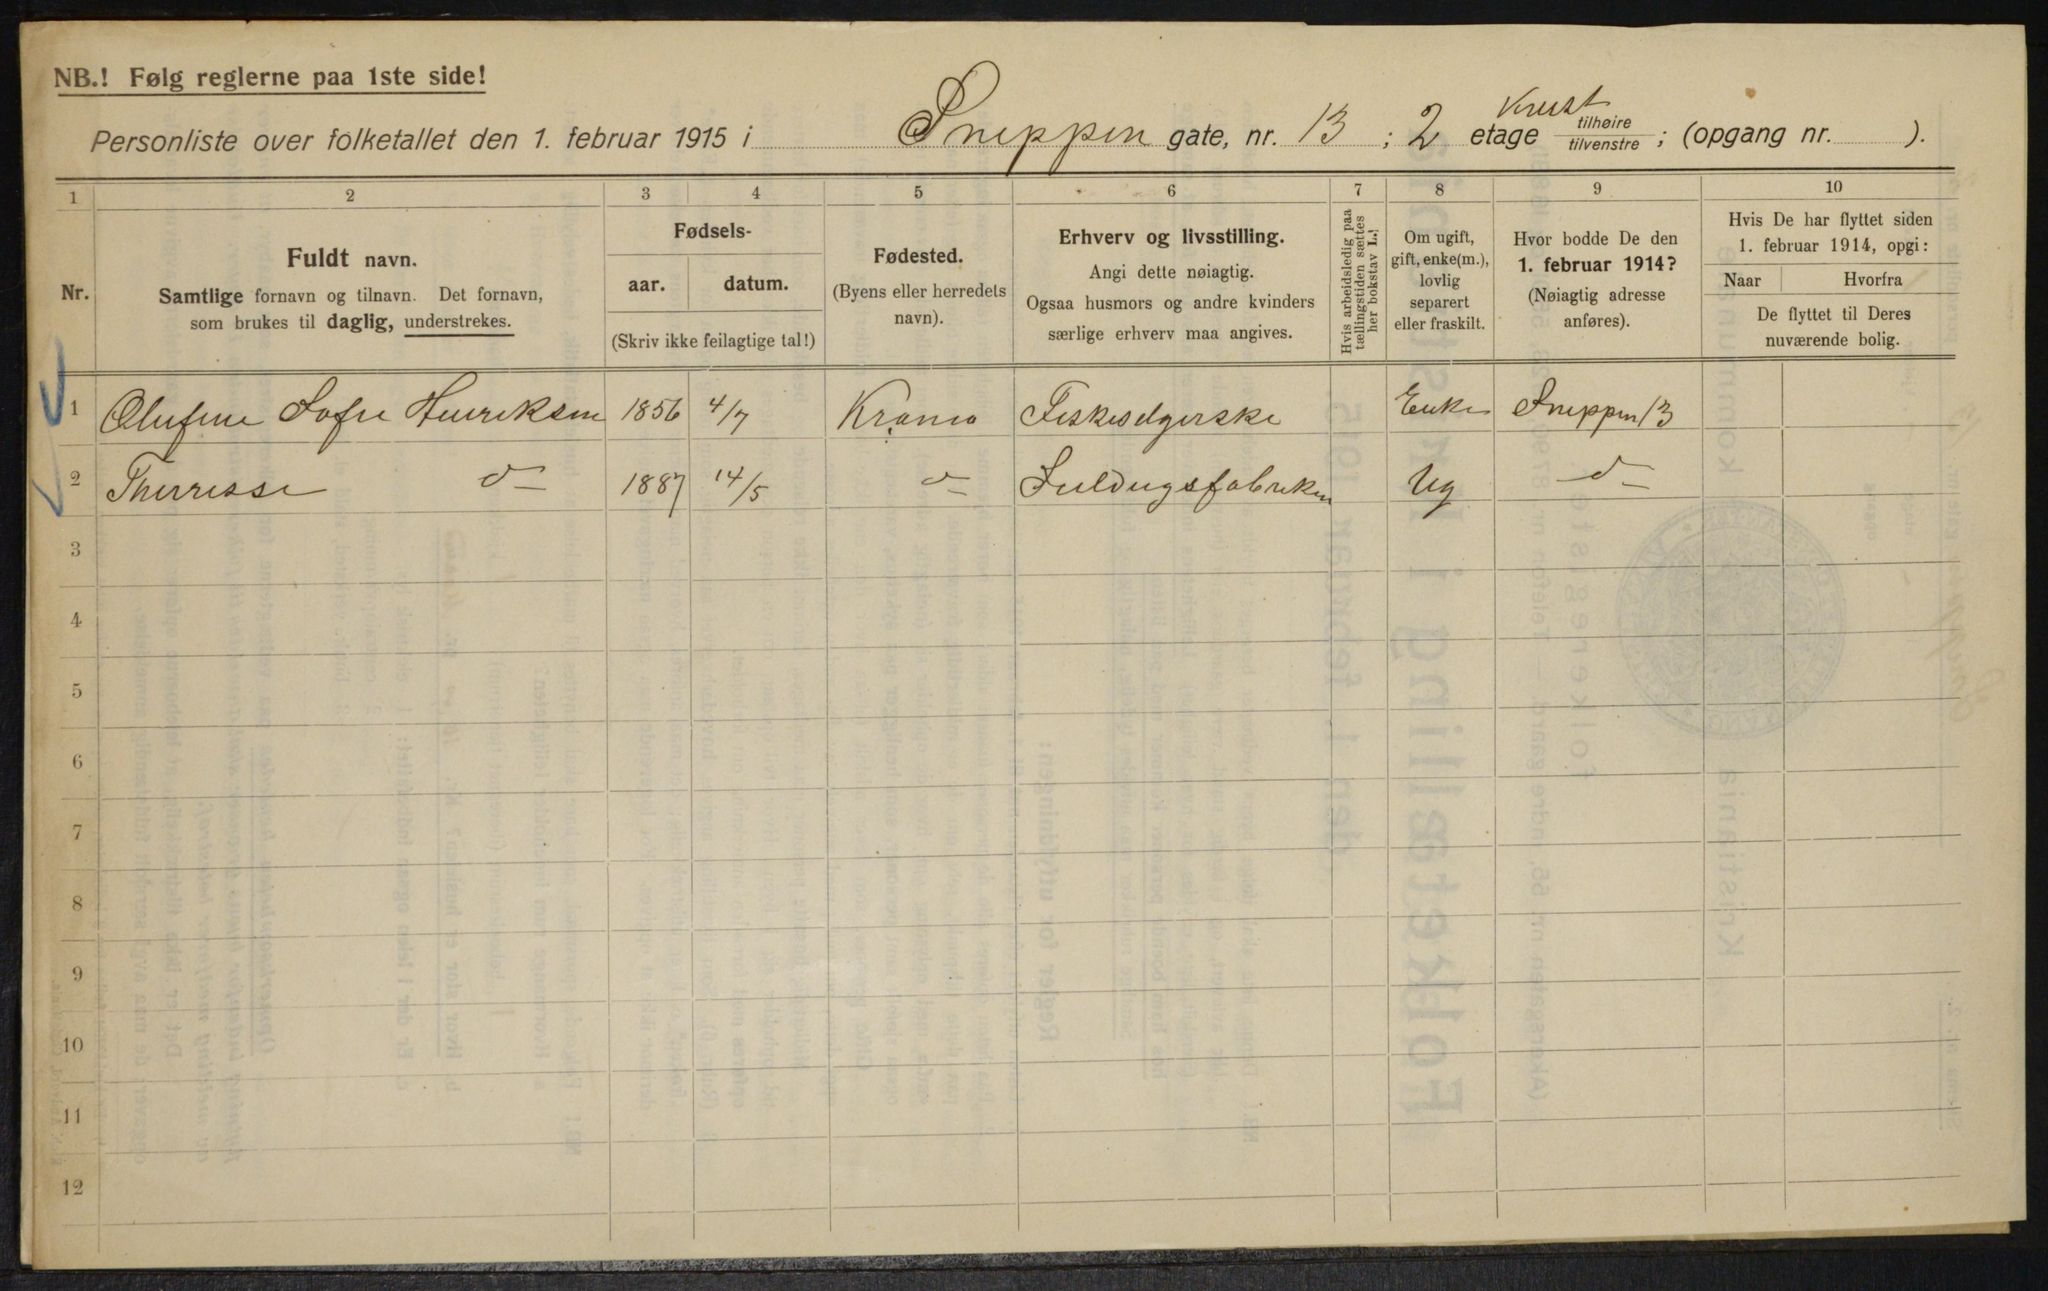 NB.! Følg reglerne paa 1ste side!
Personliste over folketallet den 1. februar 1915 i Sneppen gate, nr. 13 ; 2 etage tilhøire tilvenstre ; (opgang nr. ).
1 2 3 4 5 6 7 8 9 10
Nr.
Fuldt navn.
Samtlige fornavn og tilnavn. Det fornavn,
som brukes til daglig, understrekes.
Fødsels-
aar. datum.
(Skriv ikke feilagtige tal!)
Fødested.
(Byens eller herredets
navn).
Erhverv og livsstilling.
Angi dette nøiagtig.
Ogsaa husmors og andre kvinders
særlige erhverv maa angives.
Hvis arbeidsledig paa
tællingstiden sættes
her bokstav L.!
Om ugift,
gift, enke(m.),
lovlig
separert
eller fraskilt.
Hvor bodde De den
1. februar 1914?
(Nøiagtig adresse
anføres).
Hvis De har flyttet siden
1. februar 1914, opgi:
Naar Hvorfra
De flyttet til Deres
nuværende bolig.
1 Olufine Sofie Henriksen 1856 4/7 Krania Fiskeselgerske Enke Sneppen 13
2 Therresse d 1887 14/5 d Ug d
3
4
5
6
7
8
9
10
11
12